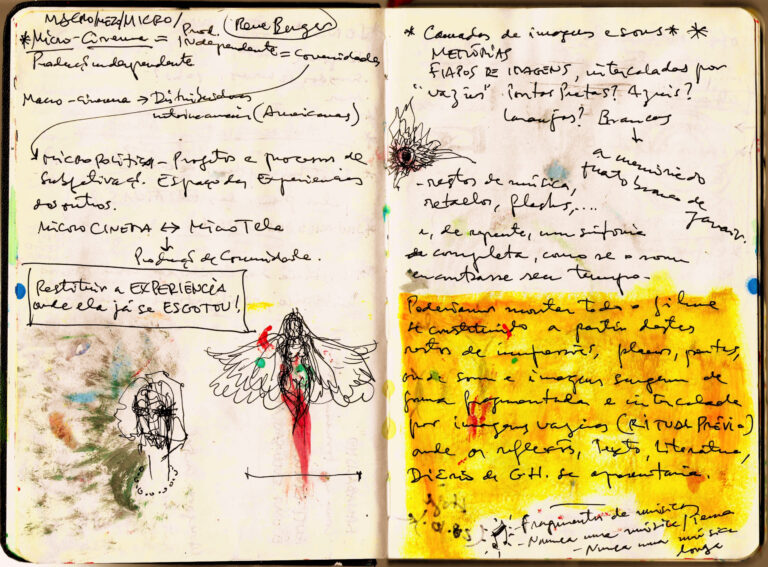 MACRO/MEZ/MICRO/
Prod. (René Berger)
*Micro-Cinema = Independente = Comunidades
Produção independente
Macro-cinema → Distribuidoras
(Americanas)
MICROPOLÍTICA - Projetos e processos de
subjetivaç. Espaço das Experiências
dos outros.
MICROCINEMA ↔ MicroTela
Produção de Comunidade.
Restituir a EXPERIÊNCIA
onde ela já se ESGOTOU!
* Camadas de imagens e sons * *
MEMÓRIAS
FIAPOS DE IMAGENS, intercaladas por
"vazios" Pontas Pretas? Azuis?
Laranjas? Brancas
a memória do
rato branco de
- restos de música,
retalhos, flashs,....
e, de repente, uma sinfonia
se completa, como se o som
encontrasse seu tempo.
Poderíamos montar todo o filme
se constituindo a partir destes
restos de impressões, planos, pontas,
onde som e imagem surgem de
forma fragmentada e intercalada
por imagens vazias (RITUAL PRÉVIO)
onde os reflexos, Texto, Literatura,
Diário de G.H. se apresentaria.
Fragmentos de músicas
- Nunca uma música/Tema
- Nunca uma música
longa